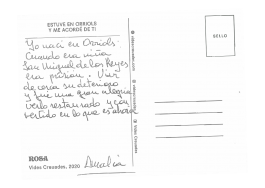 ESTUVE EN ORRIOLS
Y ME ACORDÉ DE TI
Yo nací en Orriols.
Cuando era niña
San Miguel de los Reyes
era prisión. Viví
de cerca su deterioro
y fue una gran alegría
verlo restaurado y con-
vertido en lo que es ahora
ROSA
Vides Creuades, 2020
Amalia
SELLO